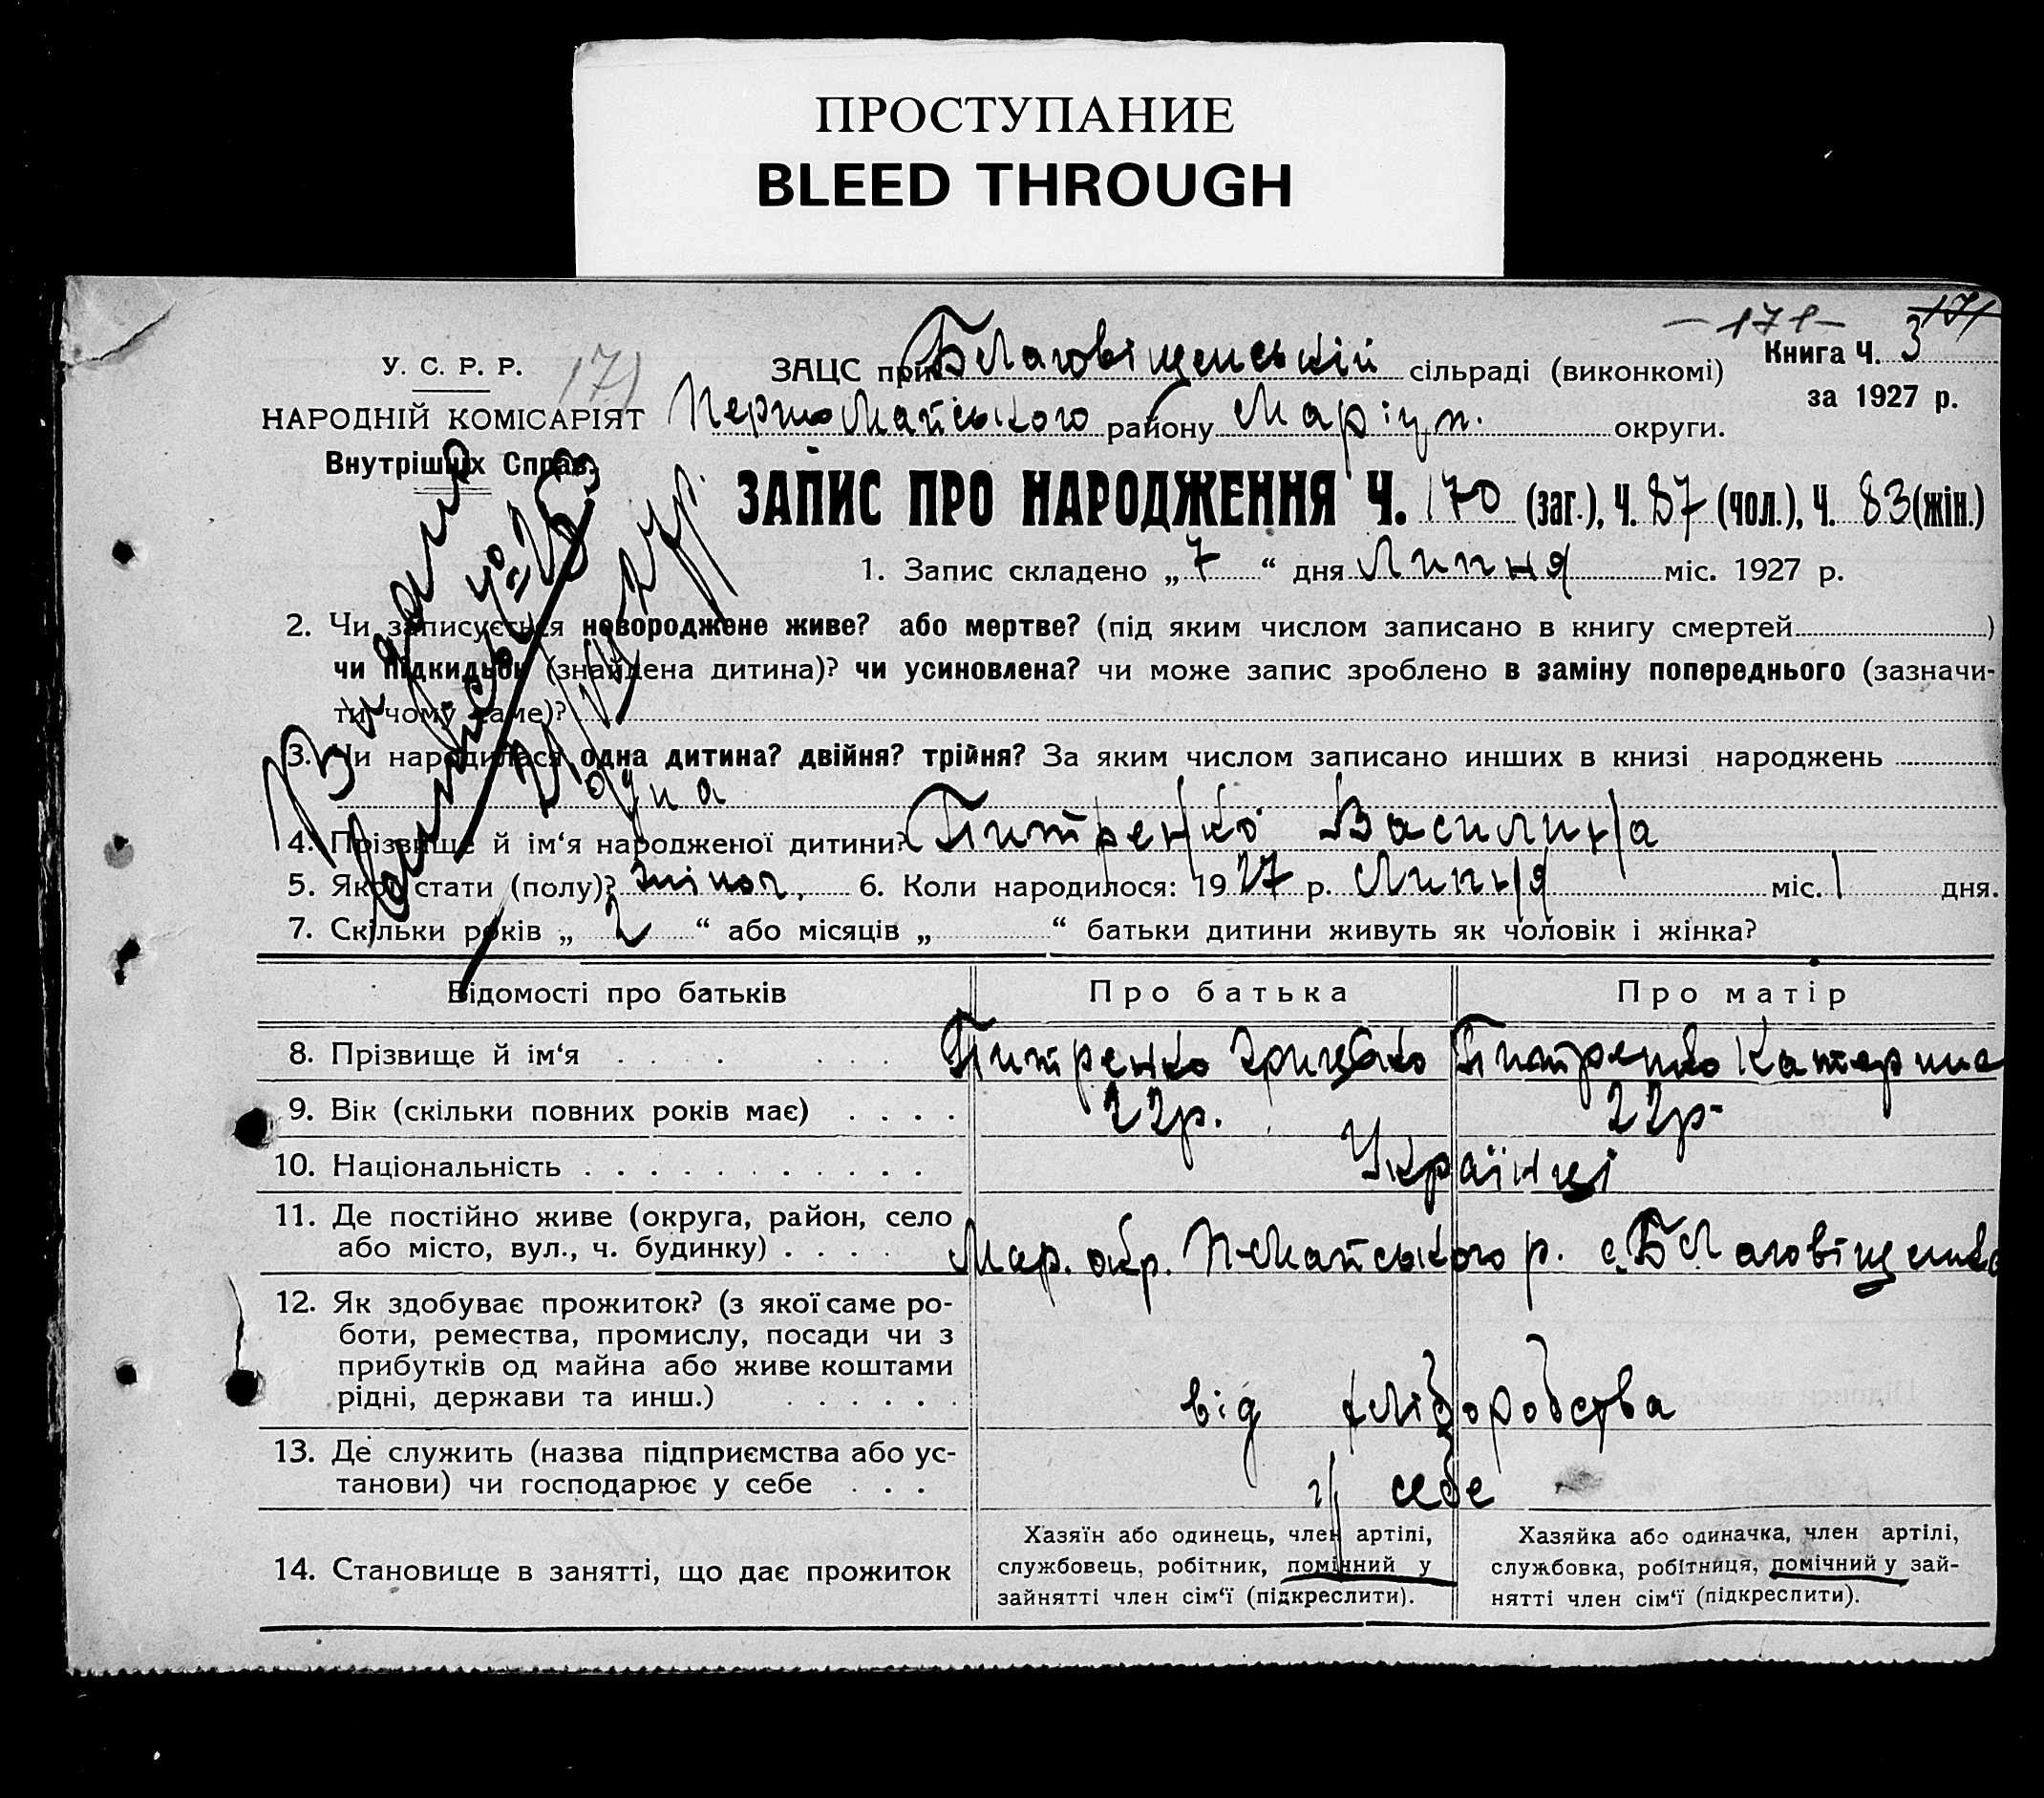 ПРОСТУПАНИЕ
BLEED THROUGH
-171- 171
У. С. Р. Р. 171
ЗАЦС при Благовіщенській сільраді (виконкомі) Книга Ч. 3
за 1927 р.
НАРОДНІЙ КОМІСАРІЯТ Першомайського району Маріуп. округи.
Внутрішніх Справ.
ЗАПИС ПРО НАРОДЖЕННЯ Ч. 170 (заг.), Ч. 87 (чол.), Ч. 83 (жін.)
1. Запис складено „ 7 “ дня Липня міс. 1927 р.
2. Чи записується новороджене живе? або мертве? (під яким числом записано в книгу смертей )
чи підкидьок (знайдена дитина)? чи усиновлена? чи може запис зроблено в заміну попереднього (зазначи-
ти чому саме)?
3. Чи народилася одна дитина? двійня? трійня? За яким числом записано инших в книзі народжень
одна
4. Прізвище й ім‘я народженої дитини? Питренко Василина
5. Якої стати (полу)? жіноч. 6. Коли народилося: 1927 р. Липня міс. 1 дня.
7. Скільки років „ 2 “ або місяців „ “ батьки дитини живуть як чоловік і жінка?
Відомості про батьків Про батька Про матір
8. Прізвище й ім‘я Питренко Грицько Питренко Катерина
9. Вік (скільки повних років має) 22р. 22р.
10. Національність Українці
11. Де постійно живе (округа, район, село
або місто, вул., ч. будинку) Мар. окр. П-Майського р. с. Благовіщенка
12. Як здобуває прожиток? (з якої саме ро-
боти, ремества, промислу, посади чи з
прибутків од майна або живе коштами
рідні, держави та инш.) від хлібородства
13. Де служить (назва підприємства або ус-
танови) чи господарює у себе у себе
14. Становище в занятті, що дає прожиток
Хазяїн або одинець, член артілі,
службовець, робітник, помічний у
зайнятті член сім‘ї (підкреслити).
Хазяйка або одиначка, член артілі,
службовка, робітниця, помічний у зай-
нятті член сім‘ї (підкреслити).